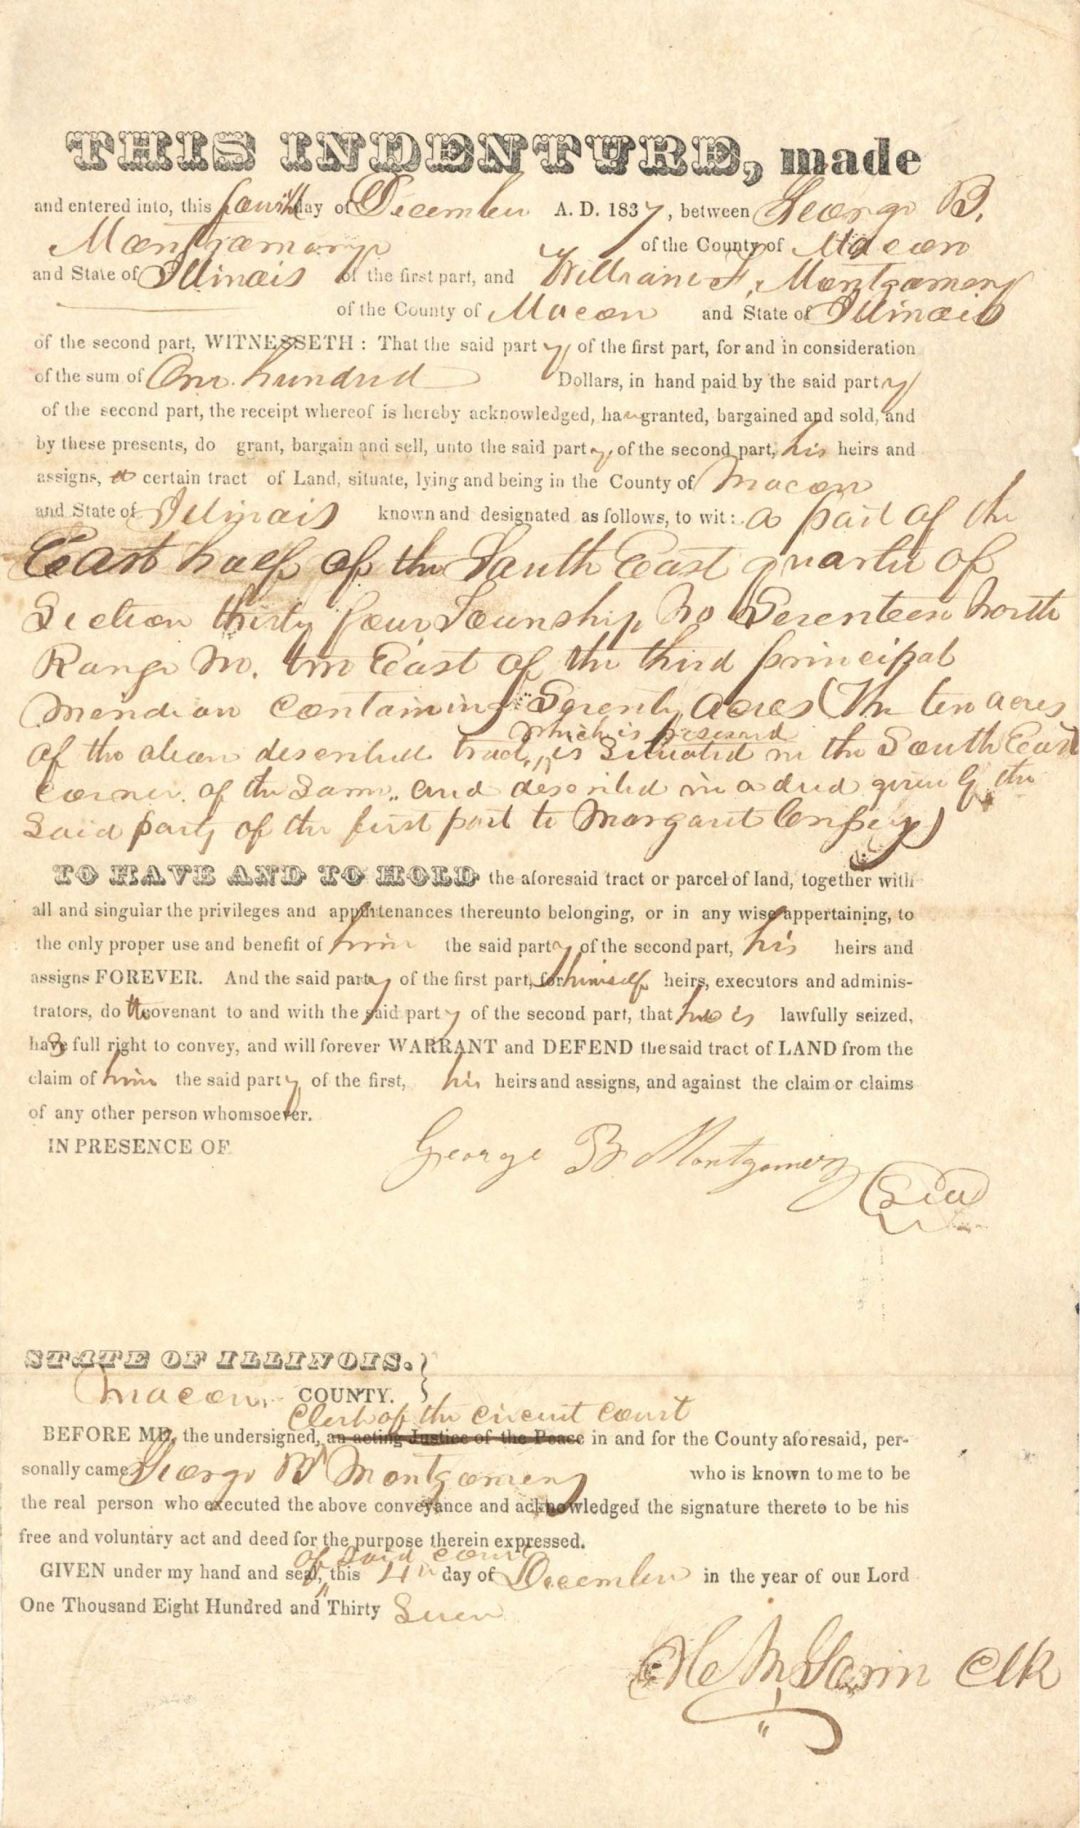 THIS INDENTURE, made
and entered into, this fourth day of December A. D. 1837, between George B.
Montgomery of the County of Macon
and State of Illinois of the first part, and William F. Montgomery
of the County of Macon and State of Illinois
of the second part, WITNESSETH: That the said party of the first part, for and in consideration
of the sum of One hundred Dollars, in hand paid by the said party
of the second part, the receipt whereof is hereby acknowledged, has granted, bargained and sold, and
by these presents, do grant, bargain and sell, unto the said party of the second part, his heirs and
assigns, a certain tract of Land, situate, lying and being in the County of Macon
and State of Illinois known and designated as follows, to wit: a part of the
East half of the South East quarter of
Section thirty four Township No Seventeen North
Range No. two East of the third principal
Meridian containing Seventy acres (The ten acres
of the above described tract, which is reserved is Situated in the South East
corner of the Same, and described in a deed given by the
Said party of the first part to Margaret)
TO HAVE AND TO HOLD the aforesaid tract or parcel of land, together with
all and singular the privileges and appurtenances thereunto belonging, or in any wise appertaining, to
the only proper use and benefit of him the said party of the second part, his heirs and
assigns FOREVER. And the said party of the first part, for himself heirs, executors and adminis-
trators, doth covenant to and with the said party of the second part, that he is lawfully seized,
has full right to convey, and will forever WARRANT and DEFEND the said tract of LAND from the
claim of him the said party of the first, his heirs and assigns, and against the claim or claims
of any other person whomsoever.
IN PRESENCE OF George B Montgomery Seal
STATE OF ILLINOIS. }
Macon COUNTY. }
Clerk of the circuit court
BEFORE ME, the undersigned, an acting Justice of the Peace in and for the County aforesaid, per-
sonally came George B Montgomery who is known to me to be
the real person who executed the above conveyance and acknowledged the signature thereto to be his
free and voluntary act and deed for the purpose therein expressed.
of said court
GIVEN under my hand and seal, this 4th day of December in the year of our Lord
One Thousand Eight Hundred and Thirty Seven
H M Gorin Clk